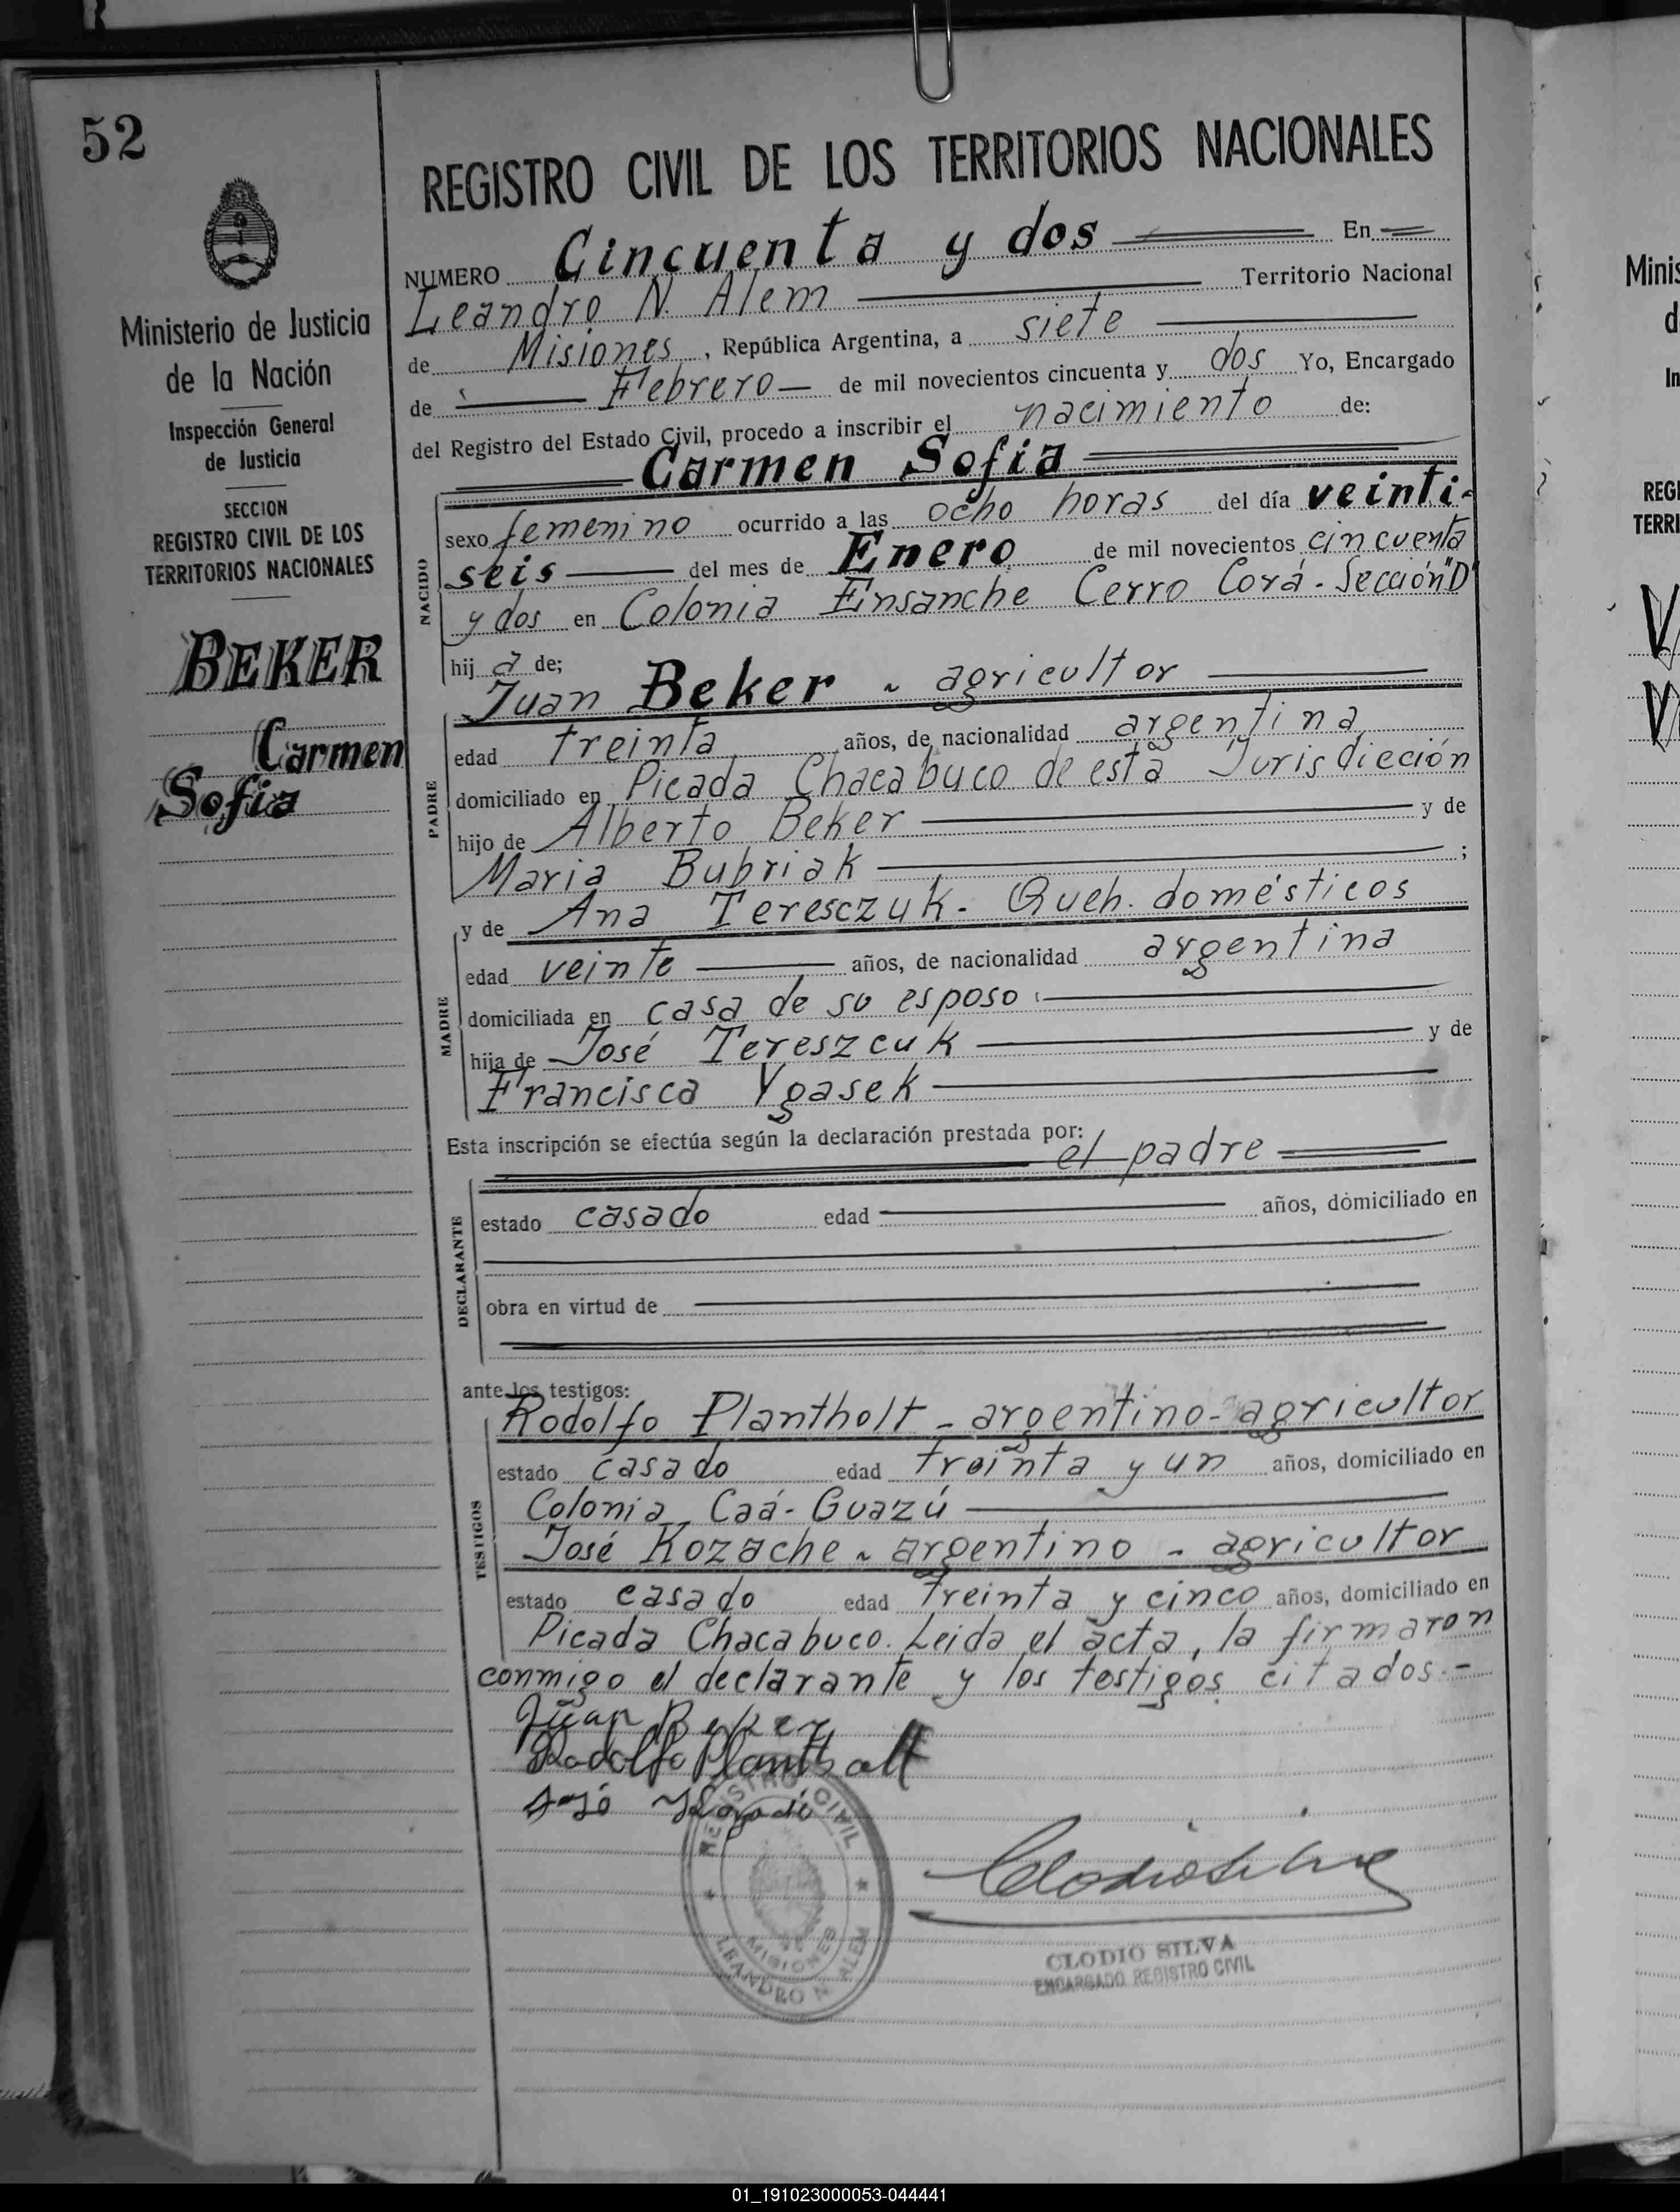 52
Ministerio de Justicia
de la Nación
Inspección General
de Justicia
SECCION
REGISTRO CIVIL DE LOS
TERRITORIOS NACIONALES
BEKER
Carmen
Sofia
REGISTRO CIVIL DE LOS TERRITORIOS NACIONALES
NUMERO Cincuenta y dos En
Leandro N. Alem Territorio Nacional
de Misiones, República Argentina, a siete
de Febrero de mil novecientos cincuenta y dos Yo, Encargado
del Registro del Estado Civil, procedo a inscribir el nacimiento de:
Carmen Sofia
NACIDO
sexo femenino ocurrido a las ocho horas del día veinti-
seis del mes de Enero de mil novecientos cincuenta
y dos en Colonia Ensanche Cerro Corá - Sección "D"
hij a de;
Juan Beker - agricultor
PADRE
edad treinta años, de nacionalidad argentina
domiciliado en Picada Chacabuco de esta Jurisdicción
hijo de Alberto Beker y de
Maria Bubriak ;
y de Ana Teresczuk - Queh. domésticos
MADRE
edad veinte años, de nacionalidad argentina
domiciliada en casa de su esposo
hija de José Tereszcuk y de
Francisca Ygasek
Esta inscripción se efectúa según la declaración prestada por:
el padre
DECLARANTE
estado casado edad años, domiciliado en
obra en virtud de
ante los testigos:
Rodolfo Plantholt - argentino - agricultor
TESTIGOS
estado casado edad treinta y un años, domiciliado en
Colonia Caá-Guazú
José Kozache - argentino - agricultor
estado casado edad treinta y cinco años, domiciliado en
Picada Chacabuco. Leida el acta, la firmaron
conmigo el declarante y los testigos citados.-
Juan Beker
Rodolfo Plantholt
REGISTRO CIVIL
MISIONES
LEANDRO N. ALEM
CLODIO SILVA
ENCARGADO REGISTRO CIVIL
Minis
d
In
REGI
TERRI
01_191023000053-044441